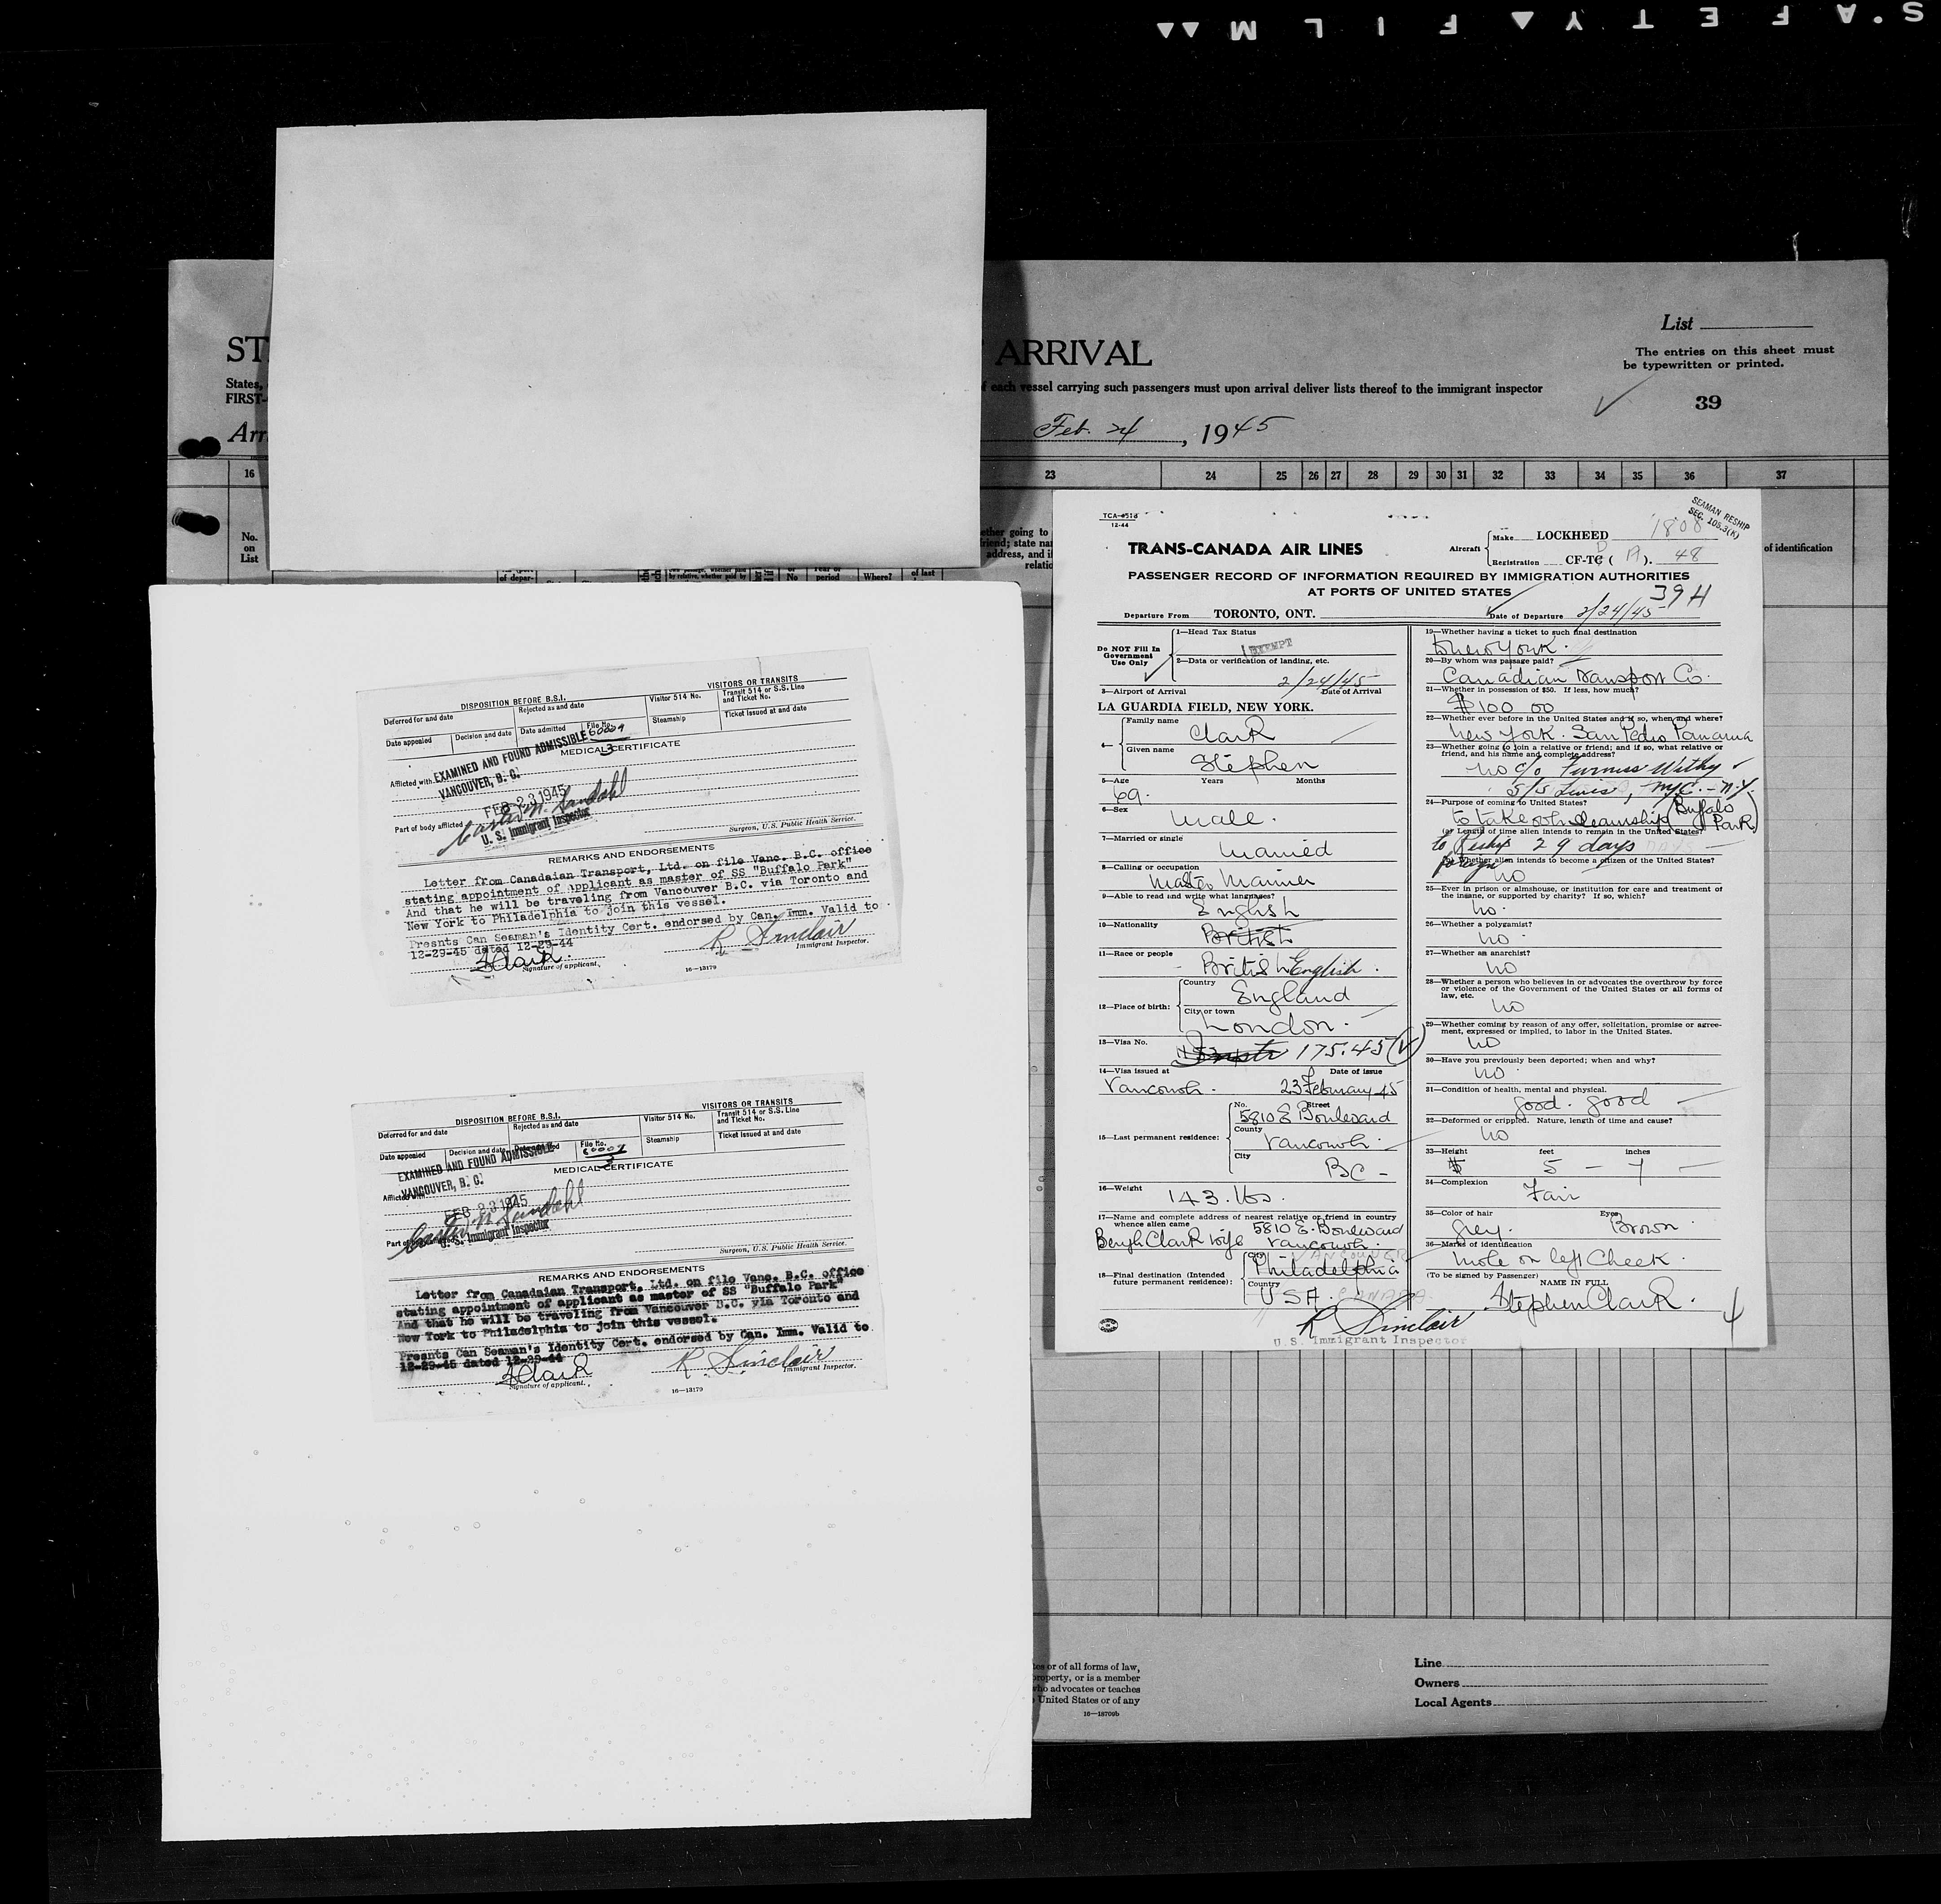 SAFETY FILM
List
ST
ARRIVAL
The entries on this sheet must
be typewritten or printed.
States,
of each vessel carrying such passengers must upon arrival deliver lists thereof to the immigrant inspector
FIRST-
39
Arr
Feb. 24, 1945
16 23 24 25 26 27 28 29 30 31 32 33 34 35 36 37
No.
on
List
of identification
TCA-4518
12-44
SEAMAN RESHIP
SEC. 105.3(K)
TRANS-CANADA AIR LINES
Aircraft
Make LOCKHEED 1808
Registration CF-TC ( D A ). 48
PASSENGER RECORD OF INFORMATION REQUIRED BY IMMIGRATION AUTHORITIES
AT PORTS OF UNITED STATES
39 H
Departure From TORONTO, ONT. Date of Departure 2/24/45
Do NOT Fill In
Government
Use Only
1—Head Tax Status
EXEMPT
2—Data or verification of landing, etc.
2/24/45
3—Airport of Arrival Date of Arrival
LA GUARDIA FIELD, NEW YORK.
4— Family name
Clark
Given name
Stephen
5—Age Years Months
69.
6—Sex
Male.
7—Married or single
Married
8—Calling or occupation
Master Mariner
9—Able to read and write what languages?
English
10—Nationality
British
11—Race or people
British English.
12—Place of birth: Country
England
City or town
London.
13—Visa No.
175.45 (V)
14—Visa issued at Date of issue
Vancouver. 23 February 45
15—Last permanent residence: No. Street
5810 E Boulevard
County
Vancouver
City
BC -
16—Weight
143. lbs.
17—Name and complete address of nearest relative or friend in country
whence alien came 5810 E. Boulevard
Beryh Clark wife Vancouver.
18—Final destination (Intended
future permanent residence): City
Philadelphia
Country
USA.
R Sinclair
U.S. Immigrant Inspector
19—Whether having a ticket to such final destination
to New York.
20—By whom was passage paid?
Canadian Transport Co.
21—Whether in possession of $50. If less, how much?
$100 00
22—Whether ever before in the United States and if so, when and where?
New York. San Pedro Panama
23—Whether going to join a relative or friend; and if so, what relative or
friend, and his name and complete address?
no c/o Furness Withy
S/S Lines, NYC. - N.Y.
24—Purpose of coming to United States?
to take over steamship (Buffalo Park)
(a) Length of time alien intends to remain in the United States?
to Reship 29 days
foreign
(b) Whether alien intends to become a citizen of the United States?
no
25—Ever in prison or almshouse, or institution for care and treatment of
the insane, or supported by charity? If so, which?
no.
26—Whether a polygamist?
no
27—Whether an anarchist?
no
28—Whether a person who believes in or advocates the overthrow by force
or violence of the Government of the United States or all forms of
law, etc.
no
29—Whether coming by reason of any offer, solicitation, promise or agree-
ment, expressed or implied, to labor in the United States.
no
30—Have you previously been deported; when and why?
no.
31—Condition of health, mental and physical.
good. good
32—Deformed or crippled. Nature, length of time and cause?
no
33—Height feet inches
5 — 7
34—Complexion
Fair
35—Color of hair Eyes
Grey. Brown
36—Marks of identification
mole on left Cheek.
(To be signed by Passenger) NAME IN FULL
Stephen Clark.
4
DISPOSITION BEFORE B.S.I. VISITORS OR TRANSITS
Deferred for and date Rejected as and date Visitor 514 No. Transit 514 or S.S. Line
and Ticket No.
Date appealed Decision and date Date admitted File No. Steamship Ticket issued at and date
MEDICAL CERTIFICATE
Afflicted with EXAMINED AND FOUND ADMISSIBLE
VANCOUVER, B. C.
FEB 23 1945
Part of body afflicted
U. S. Immigrant Inspector
Surgeon, U.S. Public Health Service.
REMARKS AND ENDORSEMENTS
Letter from Canadaian Transport, Ltd. on file Vanc. B.C. office
stating appointment of applicant as master of SS "Buffalo Park"
And that he will be traveling from Vancouver B.C. via Toronto and
New York to Philadelphia to join this vessel.
Presnts Can Seaman's Identity Cert. endorsed by Can. Imm. Valid to
12-29-45 dated 12-29-44
S Clark. R Sinclair
Signature of applicant. Immigrant Inspector.
16—13179
DISPOSITION BEFORE B.S.I. VISITORS OR TRANSITS
Deferred for and date Rejected as and date Visitor 514 No. Transit 514 or S.S. Line
and Ticket No.
Date appealed Decision and date File No. Steamship Ticket issued at and date
EXAMINED AND FOUND ADMISSIBLE
MEDICAL CERTIFICATE
VANCOUVER, B. C.
FEB 23 1945
U. S. Immigrant Inspector
Surgeon, U.S. Public Health Service.
REMARKS AND ENDORSEMENTS
Letter from Canadaian Transport, Ltd. on file Vanc. B.C. office
stating appointment of applicant as master of SS "Buffalo Park"
And that he will be traveling from Vancouver B.C. via Toronto and
New York to Philadelphia to join this vessel.
Presnts Can Seaman's Identity Cert. endorsed by Can. Imm. Valid to
12-29-45 dated 12-29-44
S Clark R. Sinclair
Signature of applicant. Immigrant Inspector.
16—13179
or of all forms of law,
property, or is a member
who advocates or teaches
United States or of any
16—18709b
Line
Owners
Local Agents